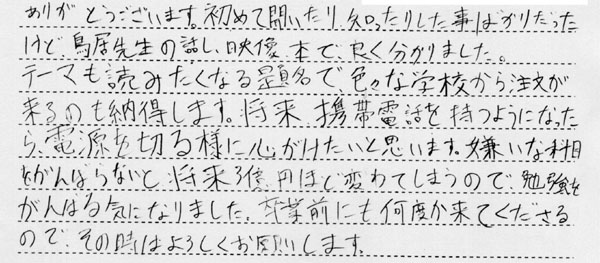 ありがとうございます。初めて聞いたり、知ったりした事ばかりだった
けど鳥居先生の話し、映像、本で、良く分かりました。
テーマも読みたくなる題名で、色々な学校から注文が
来るのも納得します。将来、携帯電話を持つようになった
ら、電源を切る様に心がけたいと思います。嫌いな科目
をがんばらないと、将来3億円ほど変わてしまうので、勉強を
がんばる気になりました。卒業前にも何度か来てくださる
ので、その時はよろしくお願いします。